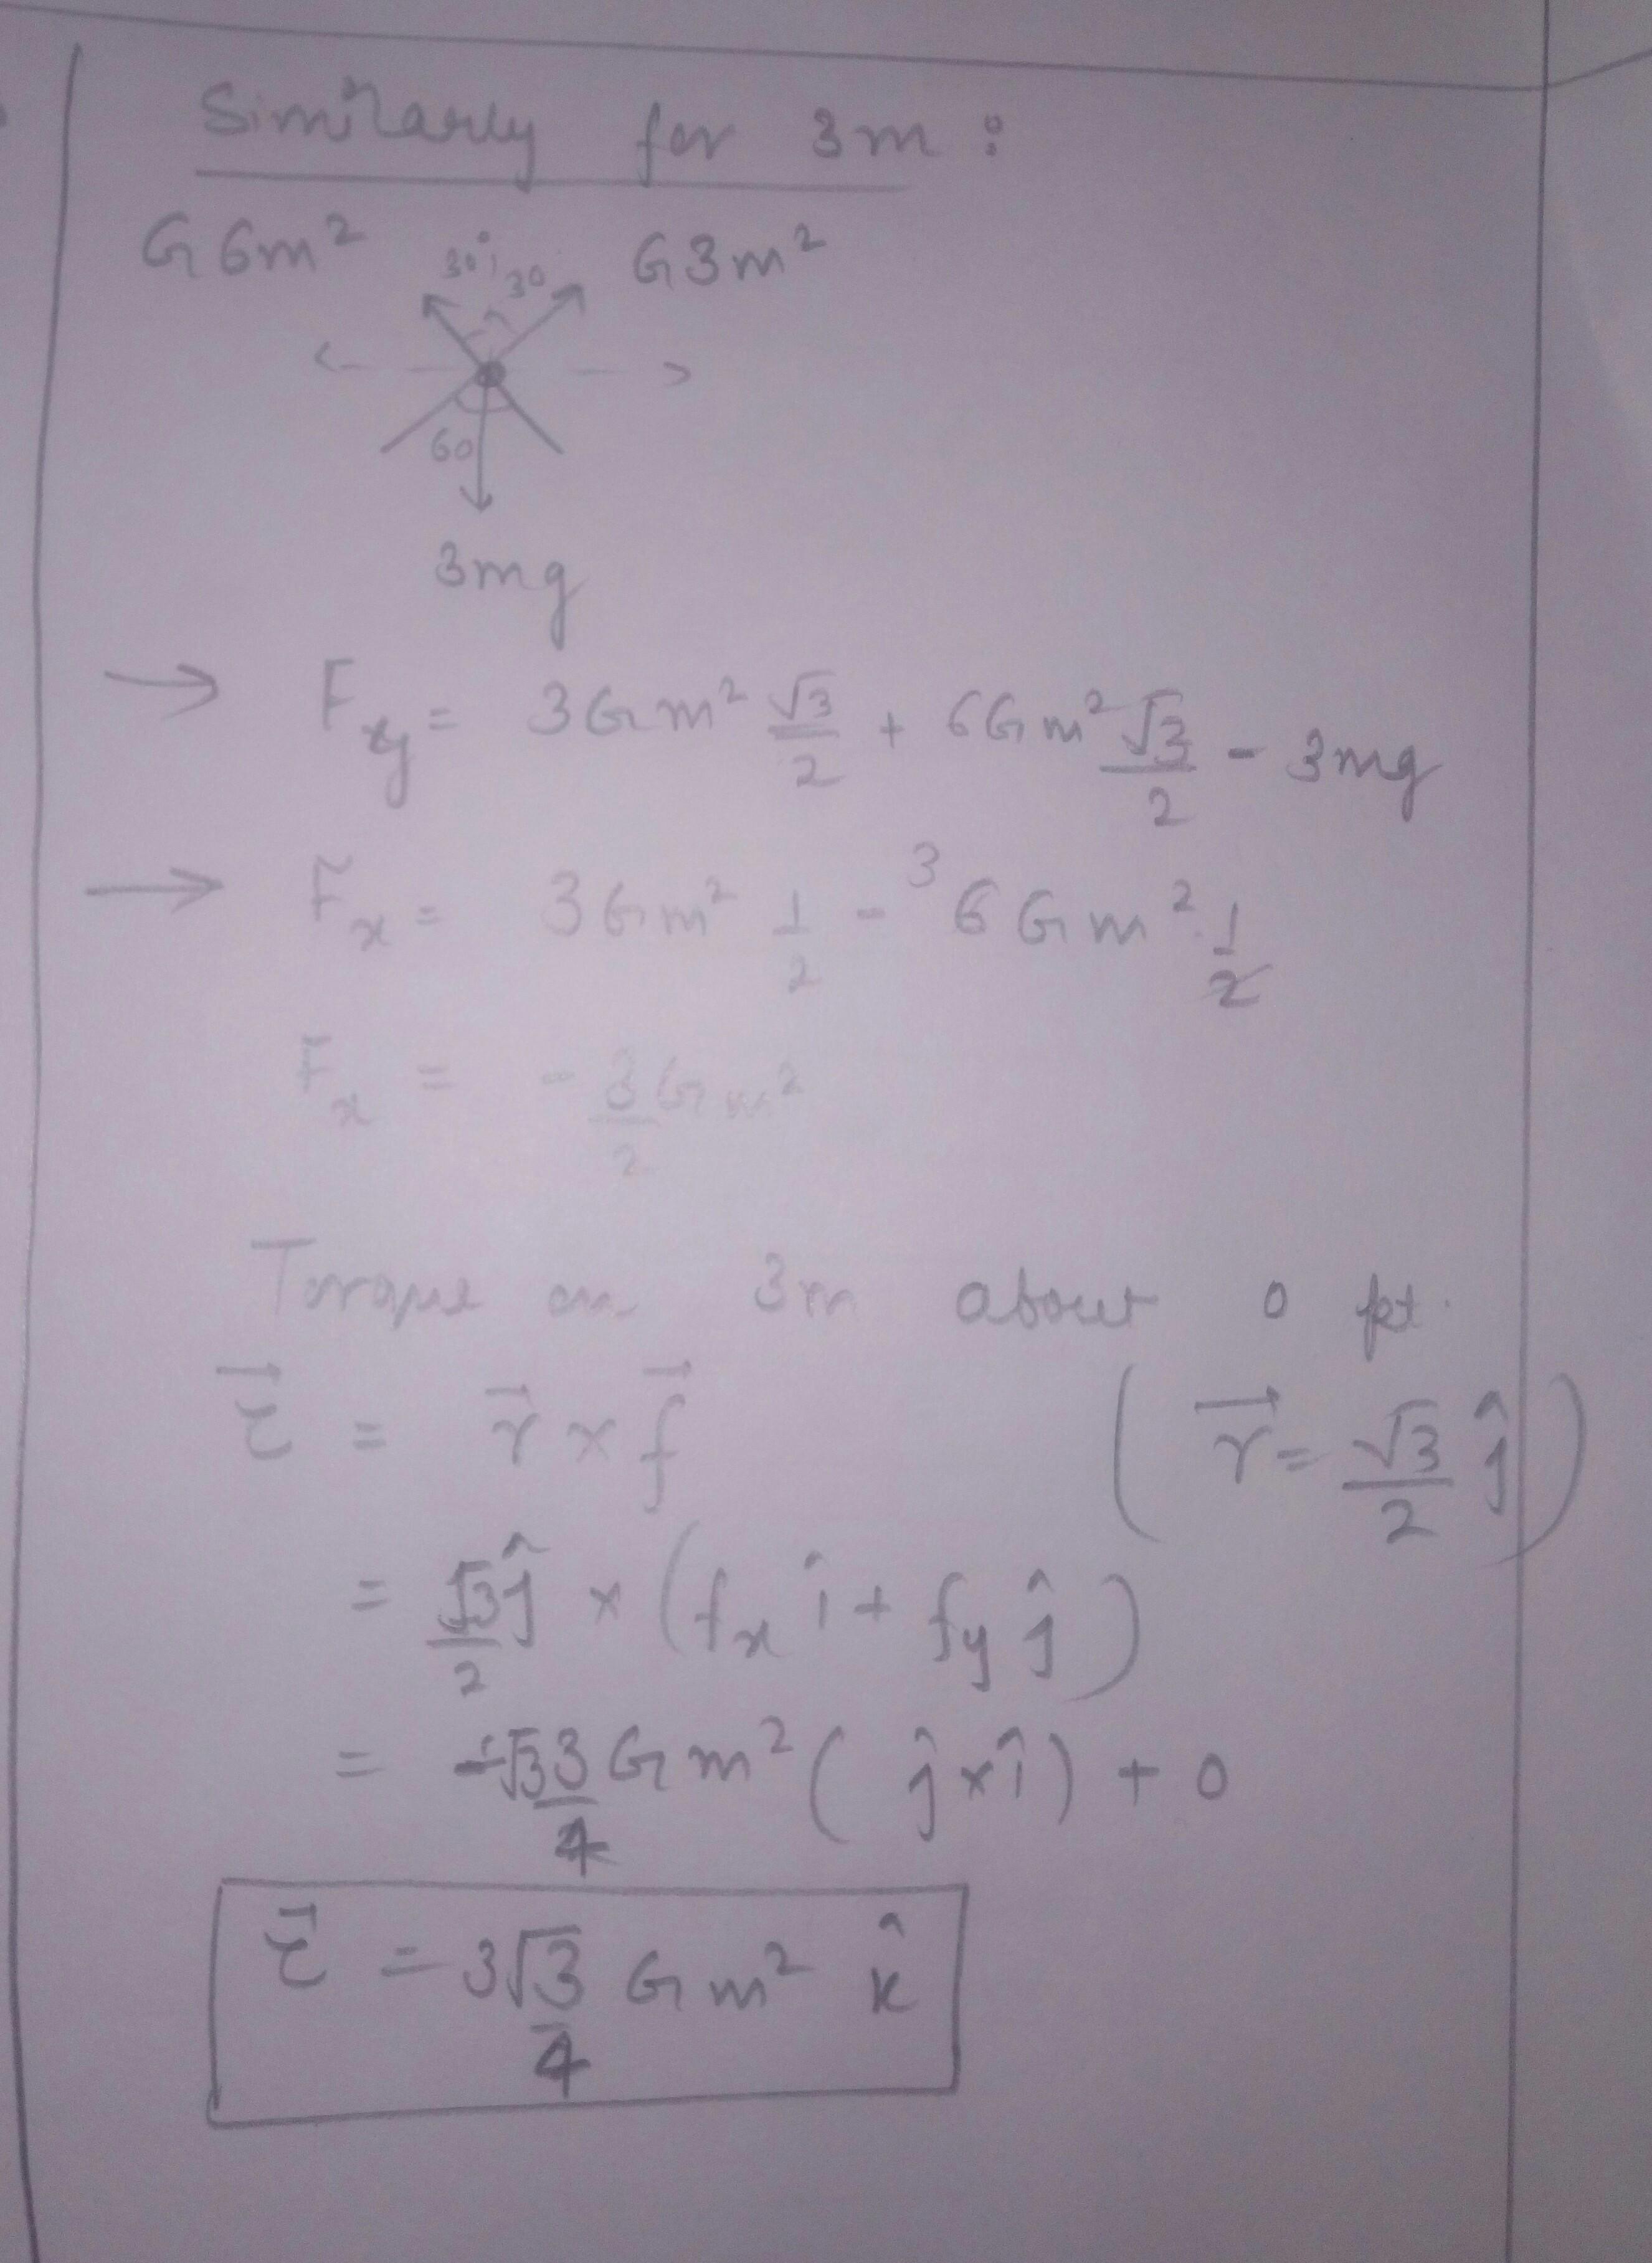 Similarly for 3m :
G6m² 30° 30 G3m²
60
3mg
→ Fy = 3Gm² √3/2 + 6Gm² √3/2 - 3mg
→ Fx = 3Gm² 1/2 - ³6Gm² 1/2
Fx = -3/2 Gm²
Torque on 3m about O pt.
τ⃗ = r⃗ × f⃗ (r⃗ = √3/2 ĵ)
= √3/2 ĵ × (fx î + fy ĵ)
= -√3 3/4 Gm² (ĵ × î) + 0
τ⃗ = 3√3/4 Gm² k̂